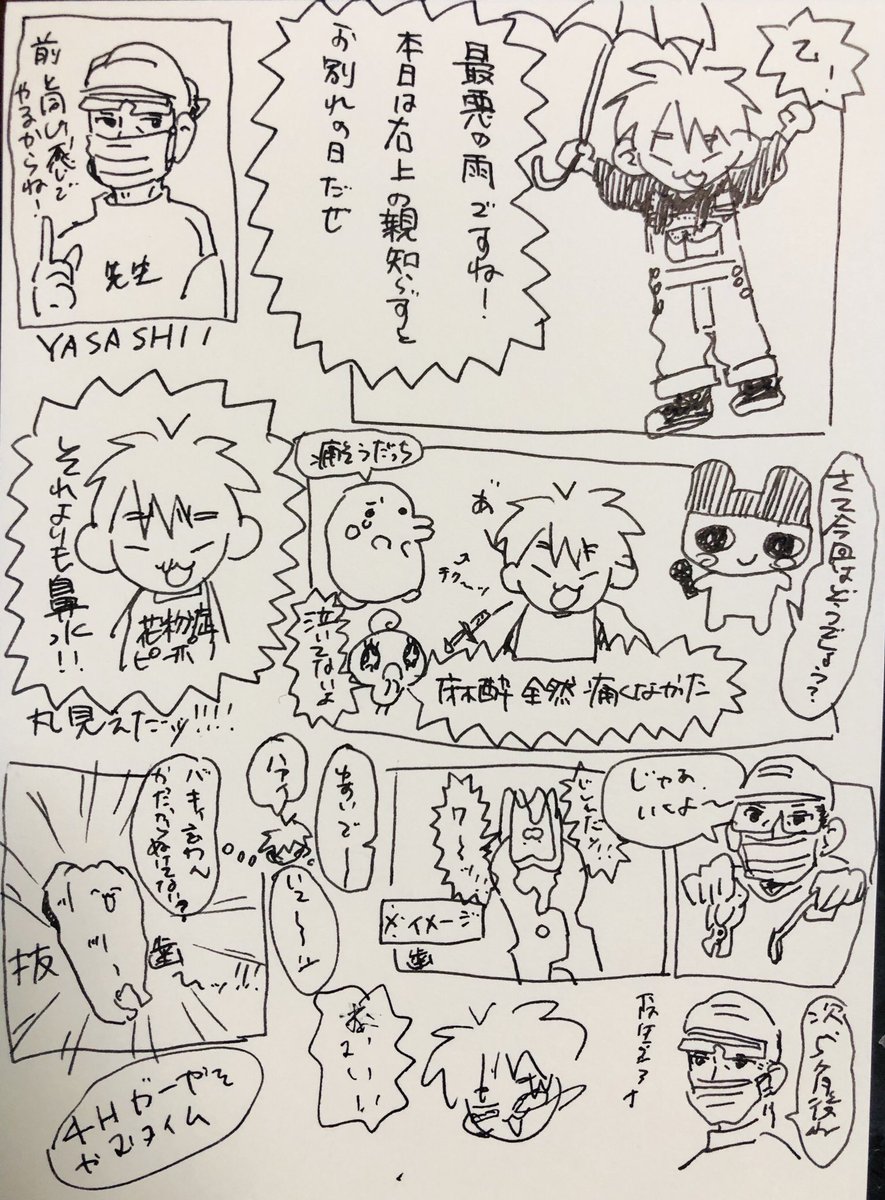 乙！
最悪の雨ですね！
本日は右上の親知らずと
お別れの日だぜ
前と同い感じで
やるからね！
先生
YASASHII
さて今回はどうでしょう??
痛そうだっち
あ
チク〜ッ
泣いてないよ
麻酔全然痛くなかた
それよりも鼻水!!
花粉症
ピーポ
丸見えだッ!!!!
じゃあ
いくよ〜
ワーッ!!
※イメージ
歯
ハァ
バキィ言わん
かった
ぬけてない?
抜
歯
〜ッ!!!
次、5ヶ月後ね
4Hガーゼ
タイム